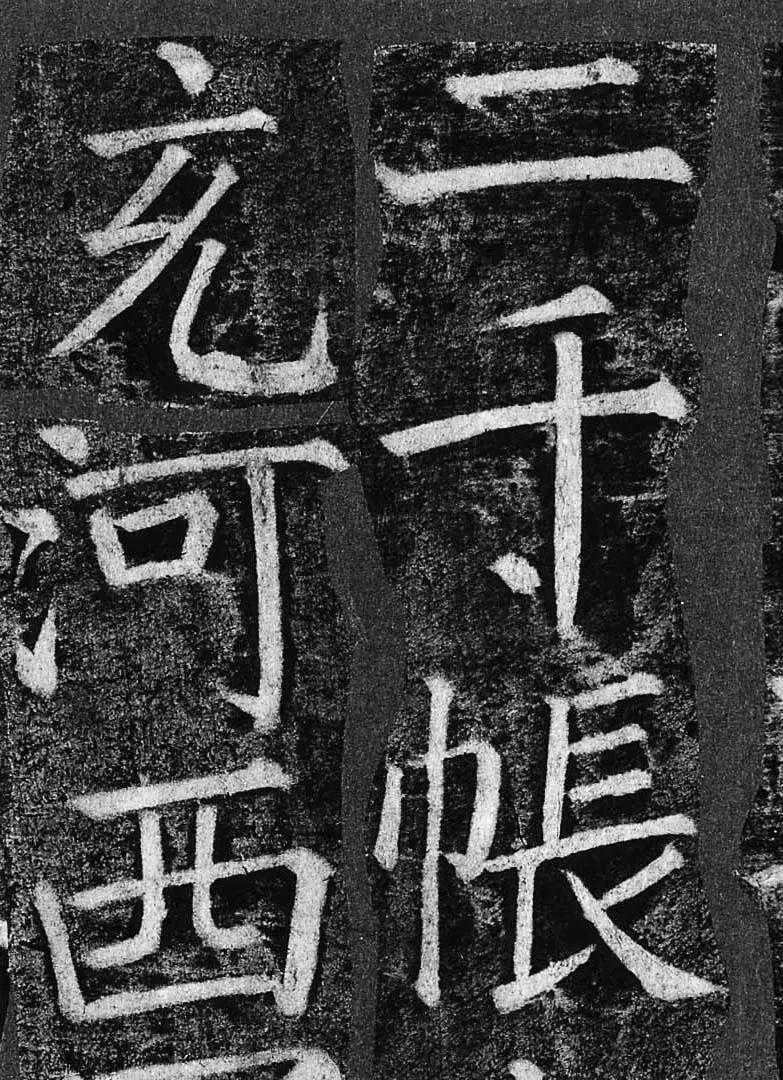 二千帳
充河西